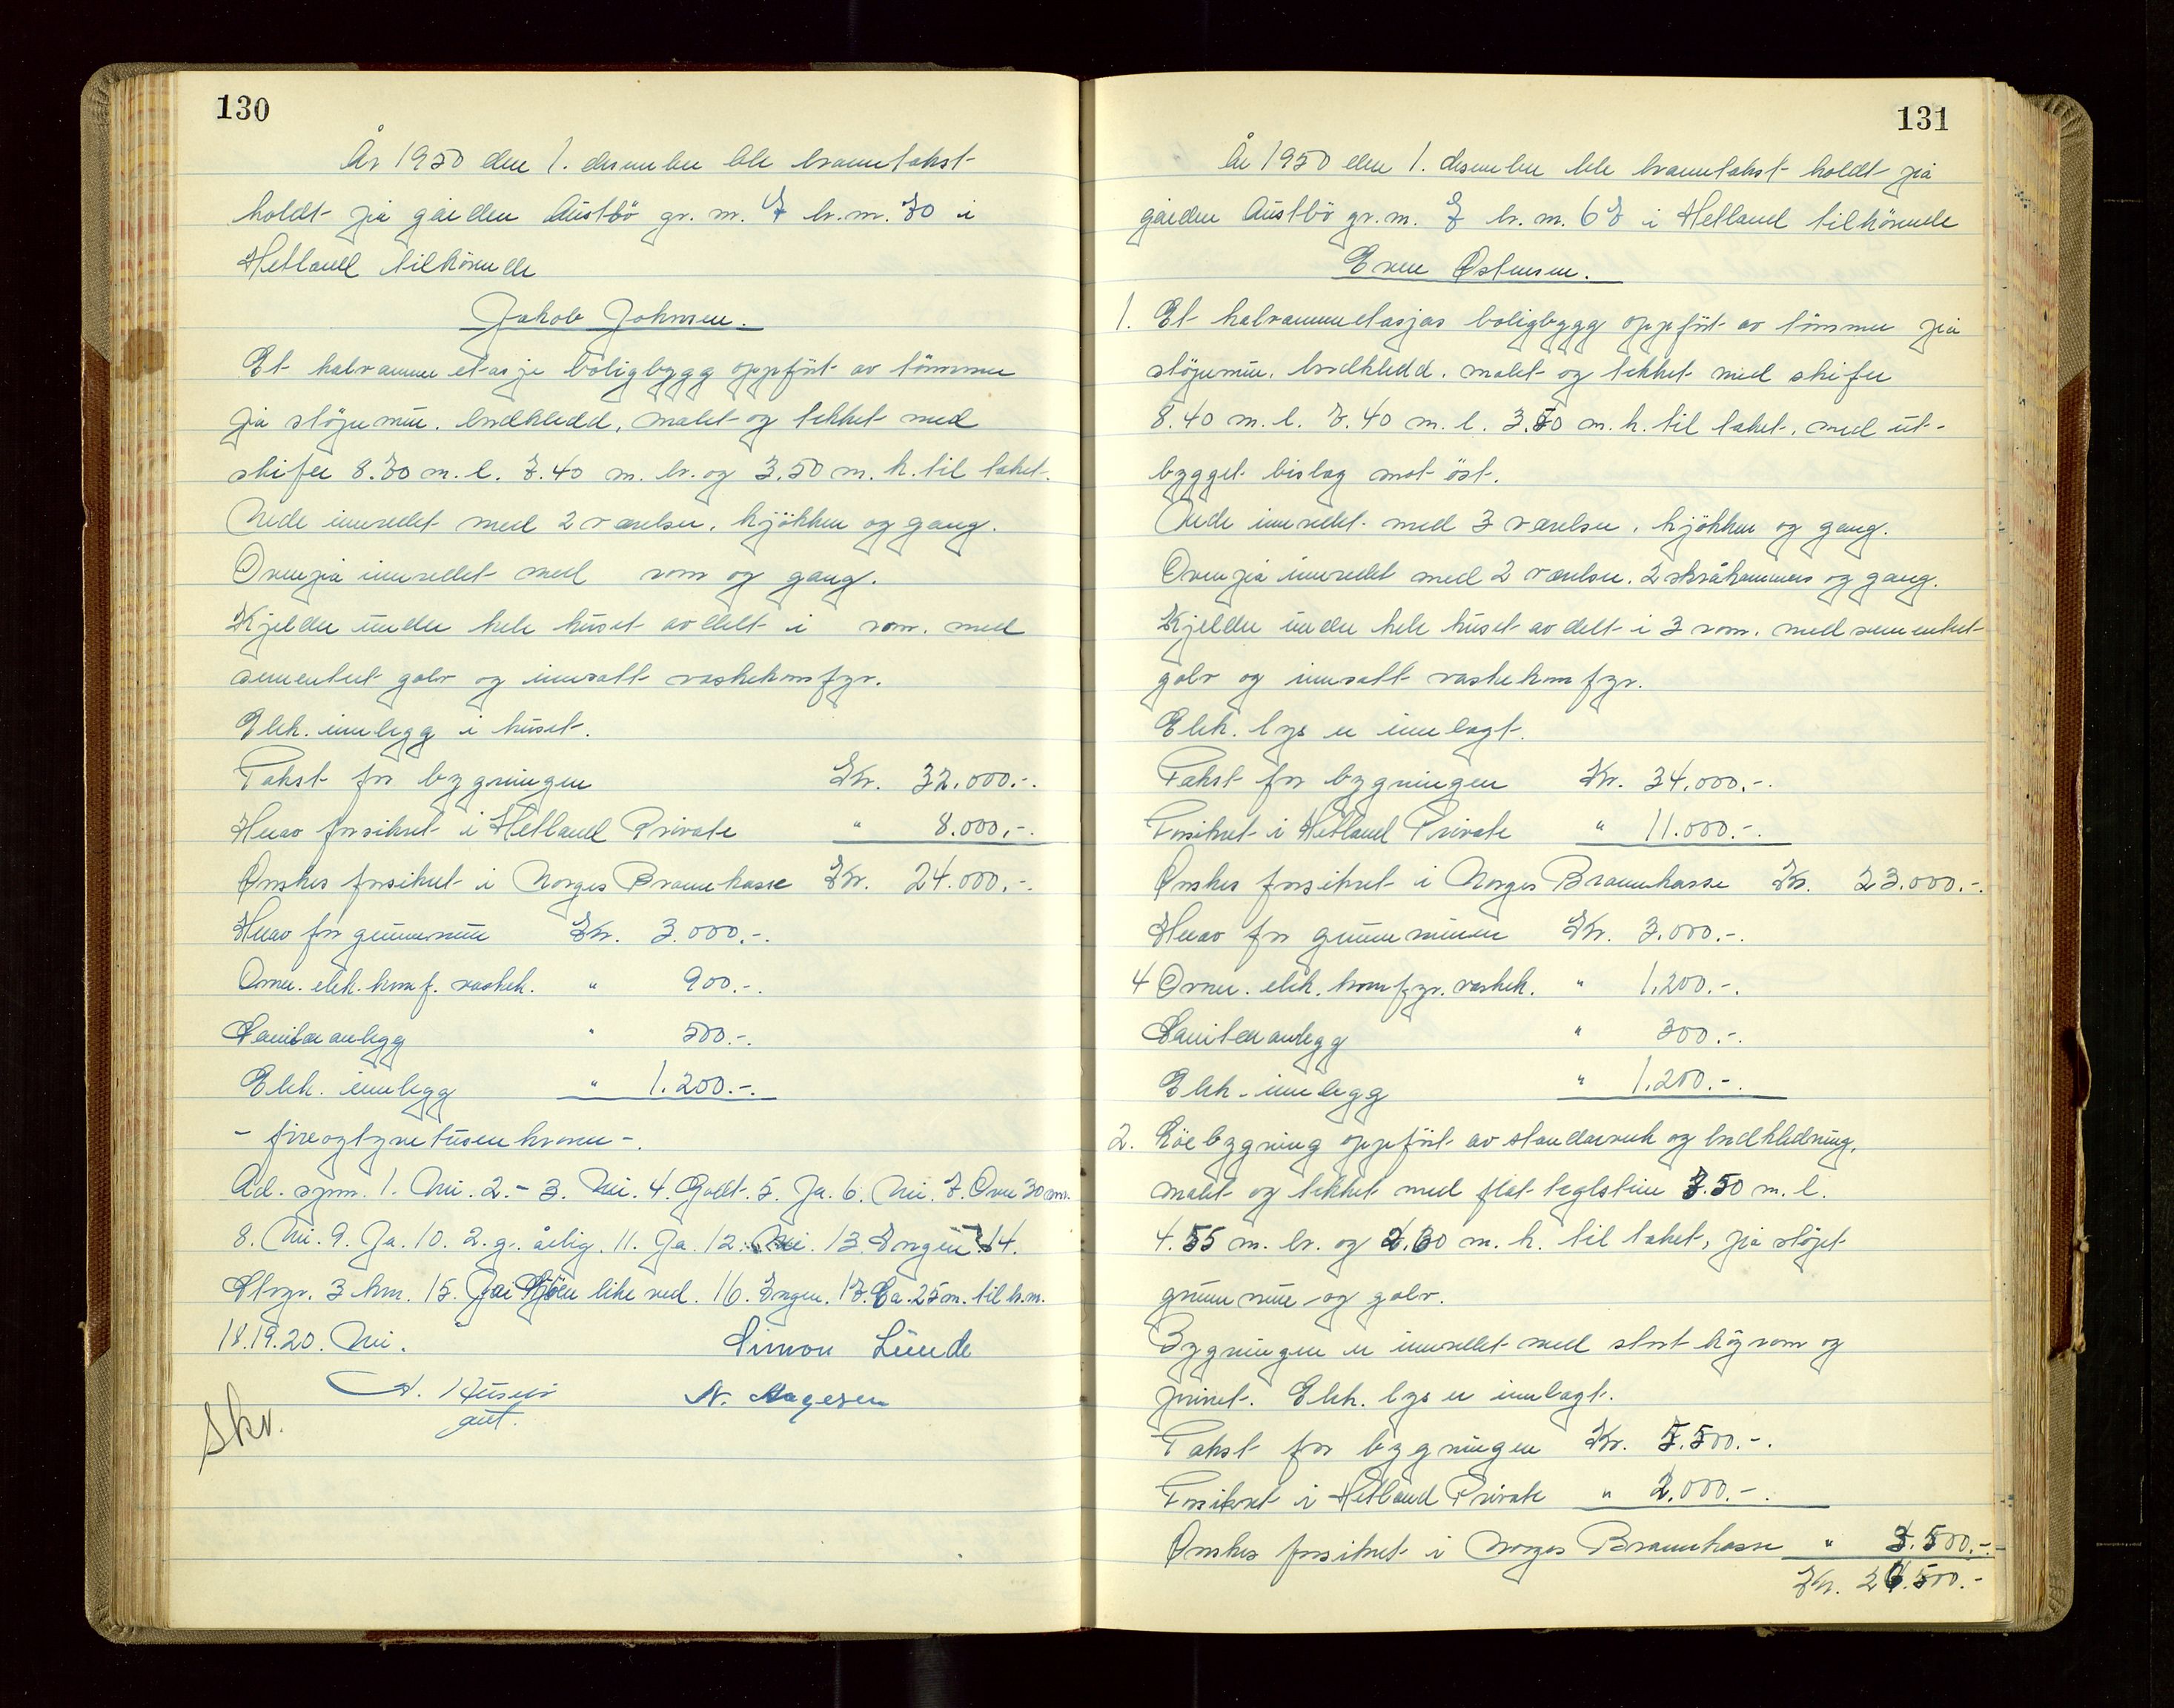 130
År 1950 den 1. desember ble branntakst
holdt på gården Austbö gr. nr. 7 br. nr. 70 i
Hetland tilhörende
Jakob Johnsen.
Et halvannen etasje boligbygg oppfört av tömmer
på stöpemur, bordkledd, malet og tekket med
skifer 8.70 m. l. 7.40 m. br. og 3.50 m. h. til taket.
Nede innredet med 2 værelser, kjökken og gang.
Ovenpå innredet med rom og gang.
Kjelder under hele huset avdelt i rom, med
sementert golv og innsatt vaskekomfyr.
Elek. innlegg i huset.
Takst for bygningen Kr. 32.000.-.
Herav forsikret i Hetland Private " 8.000,-.
Ønskes forsikret i Norges Brannkasse Kr. 24.000,-.
Herav for grunnmur Kr. 3.000.-.
Omn. elek. komf. vaskek. " 900.-.
Sanitæranlegg " 500.-.
Elek. innlegg " 1.200.-.
- fireogtyvetusen kroner -.
Ad. spm. 1. Nei. 2.- 3. Nei. 4. Godt. 5. Ja. 6. Nei. 7. Over 30 cm.
8. Nei. 9. Ja. 10. 2. g. årlig. 11. Ja. 12. Nei. 13. Ingen. 14.
Stvgr. 3 km. 15. Sjöen like ved. 16. Ingen. 17. Ca. 25 m. til h.m.
18.19.20. Nei.
Simon Lunde
N. Aagesen
Skv.
131
År 1950 den 1. desember ble branntakst holdt på
gården Austbö gr. nr. 7 br. nr. 67 i Hetland tilhörende
Even Østensen.
1. Et halvannenetasjes boligbygg oppfört av tömmer på
stöpemur, bordkledd, malet og tekket med skifer
8.40 m. l. 7.40 m. l. 3.50 m. h. til taket, med ut-
bygget bislag mot öst.
Nede innredet med 3 værelser, kjökken og gang.
Ovenpå innredet med 2 værelser, 2 skråkammers og gang.
Kjelder under hele huset avdelt i 3 rom, med sementert
golv og innsatt vaskekomfyr.
Elek. lys er innlagt.
Takst for bygningen Kr. 34.000.-.
Forsikret i Hetland Private " 11.000.-.
Ønskes forsikret i Norges Brannkasse Kr. 23.000.-.
Herav for grunnmuren Kr. 3.000.-.
4 Ovner. elek. komfyr. vaskek. " 1.200.-.
Sanitæranlegg " 300.-.
Elek. innlegg " 1.200.-.
2. Löebygning oppfört av standerverk og bordkledning,
malet og tekket med flat teglstein 7.50 m. l.
4.55 m. br. og 2.60 m. h. til taket, på stöpt
grunnmur og golv.
Bygningen er innredet med stort höyrom og
privet. Elek. lys er innlagt.
Takst for bygningen Kr. 5.500.-.
Forsikret i Hetland Private " 2.000.-.
Ønskes forsikret i Norges Brannkasse " 3.500.-.
Kr. 26.500.-